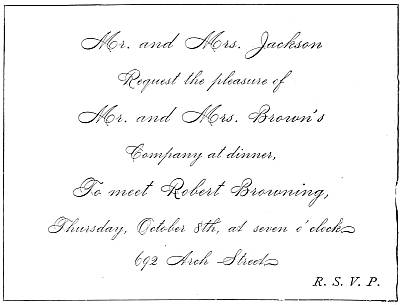 Mr. and Mrs. Jackson
Request the pleasure of
Mr. and Mrs. Brown's
Company at dinner,
To meet Robert Browning,
Thursday, October 8th, at seven o'clock
692 Arch Street
R. S. V. P.